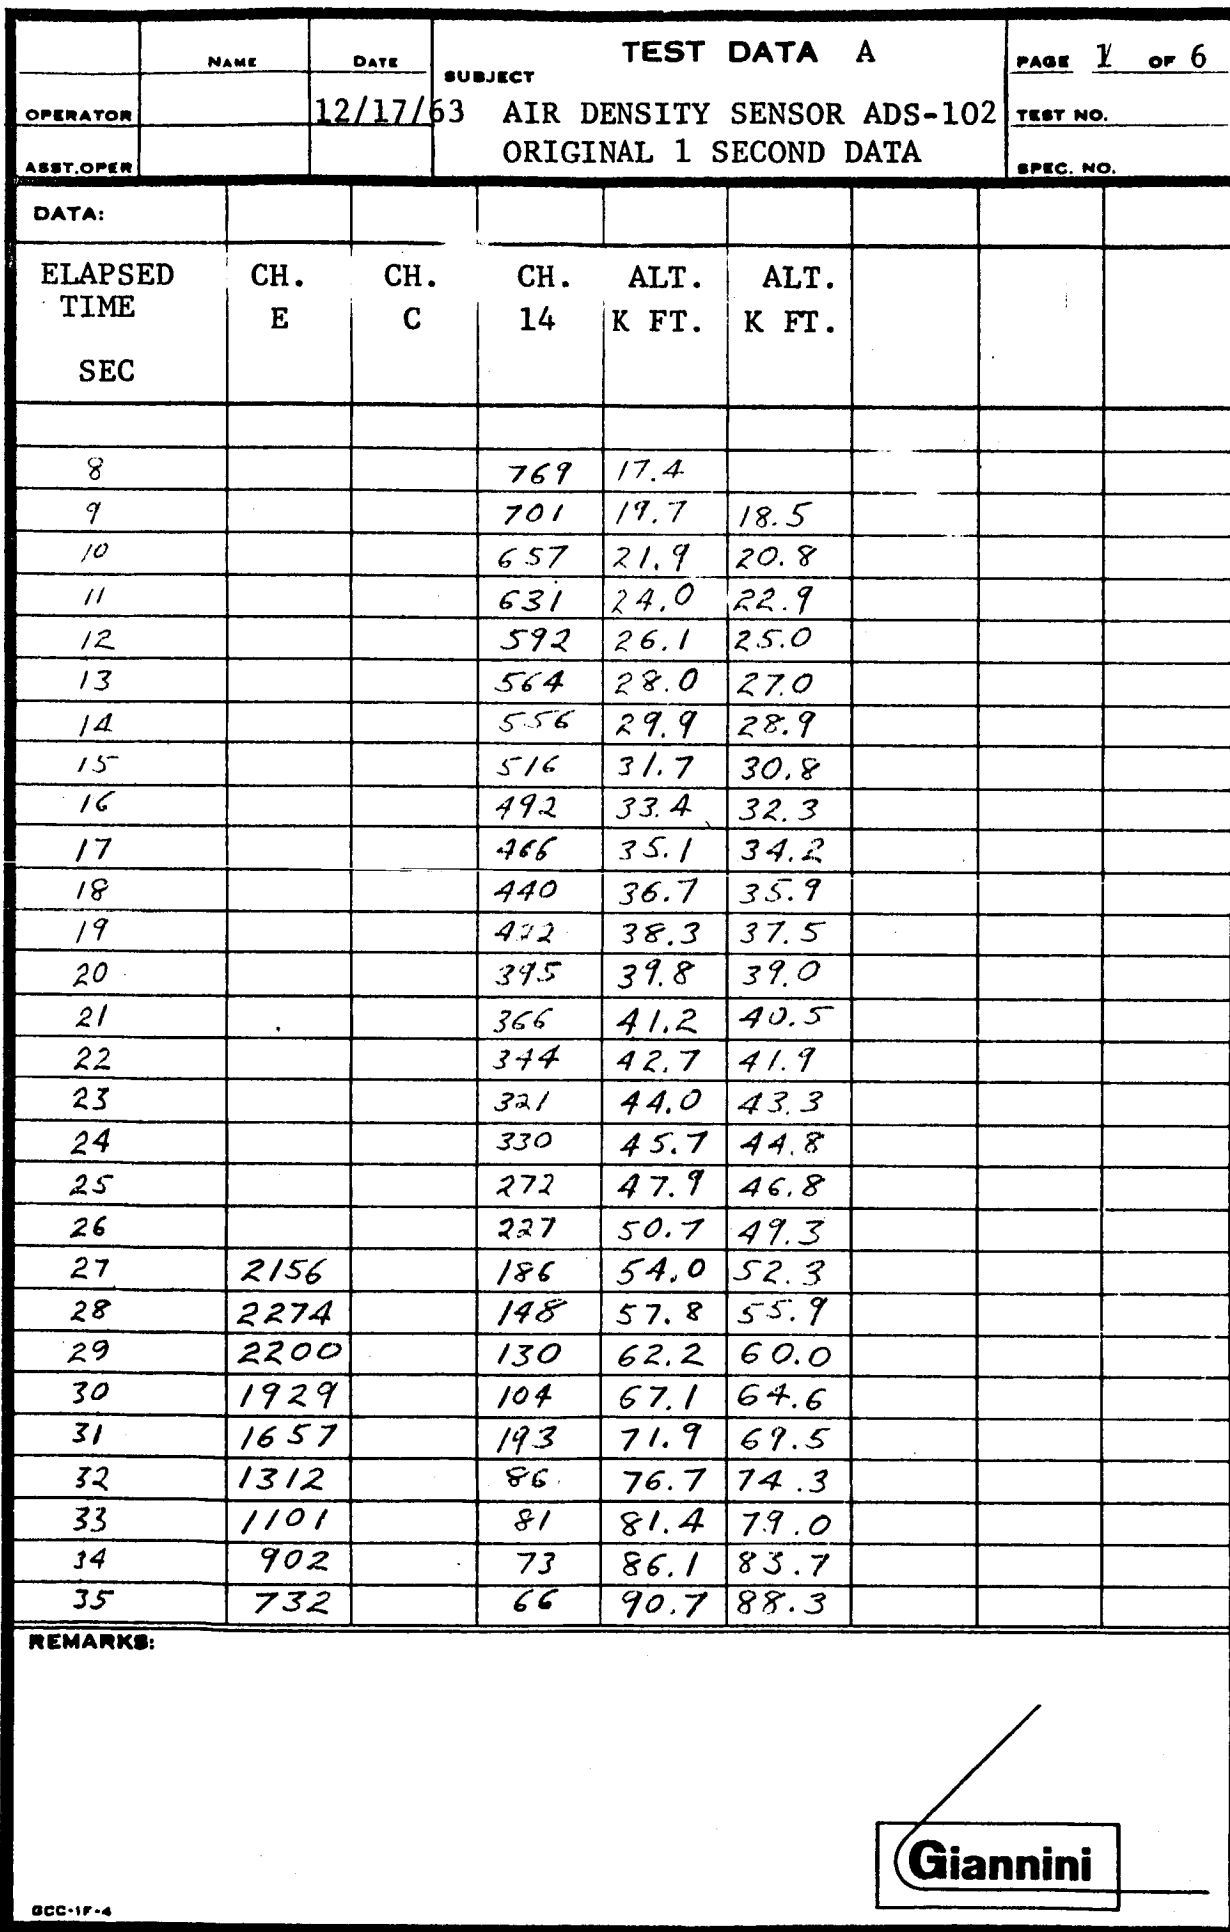 NAME DATE SUBJECT TEST DATA A PAGE 1 OF 6
OPERATOR 12/17/63 AIR DENSITY SENSOR ADS-102 TEST NO.
ASST.OPER ORIGINAL 1 SECOND DATA SPEC. NO.
DATA:
ELAPSED CH. CH. CH. ALT. ALT.
TIME E C 14 K FT. K FT.
SEC
8 769 17.4
9 701 19.7 18.5
10 657 21.9 20.8
11 631 24.0 22.9
12 592 26.1 25.0
13 564 28.0 27.0
14 556 29.9 28.9
15 516 31.7 30.8
16 492 33.4 32.3
17 466 35.1 34.2
18 440 36.7 35.9
19 422 38.3 37.5
20 395 39.8 39.0
21 366 41.2 40.5
22 344 42.7 41.9
23 321 44.0 43.3
24 330 45.7 44.8
25 272 47.9 46.8
26 227 50.7 49.3
27 2156 186 54.0 52.3
28 2274 148 57.8 55.9
29 2200 130 62.2 60.0
30 1929 104 67.1 64.6
31 1657 193 71.9 69.5
32 1312 86 76.7 74.3
33 1101 81 81.4 79.0
34 902 73 86.1 83.7
35 732 66 90.7 88.3
REMARKS:
Giannini
GCC-1F-4